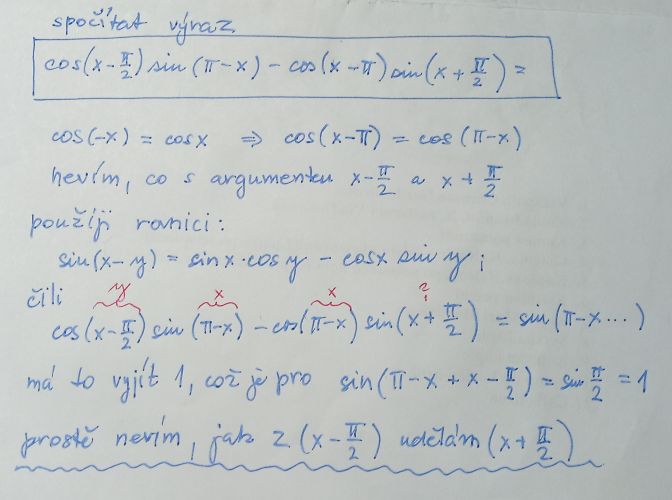 spočítat výraz
cos(x-π/2) sin(π-x) - cos(x-π) sin(x+π/2) =
cos(-x) = cosx ⇒ cos(x-π) = cos(π-x)
nevím, co s argumentu x-π/2 a x+π/2
použiji rovnici:
sin(x-y) = sinx·cosy - cosx siny ;
čili
y x x ?
cos(x-π/2) sin(π-x) - cos(π-x) sin(x+π/2) = sin(π-x...)
má to vyjít 1, což je pro sin(π-x+x-π/2) = sin π/2 = 1
prostě nevím, jak z (x-π/2) udělám (x+π/2)